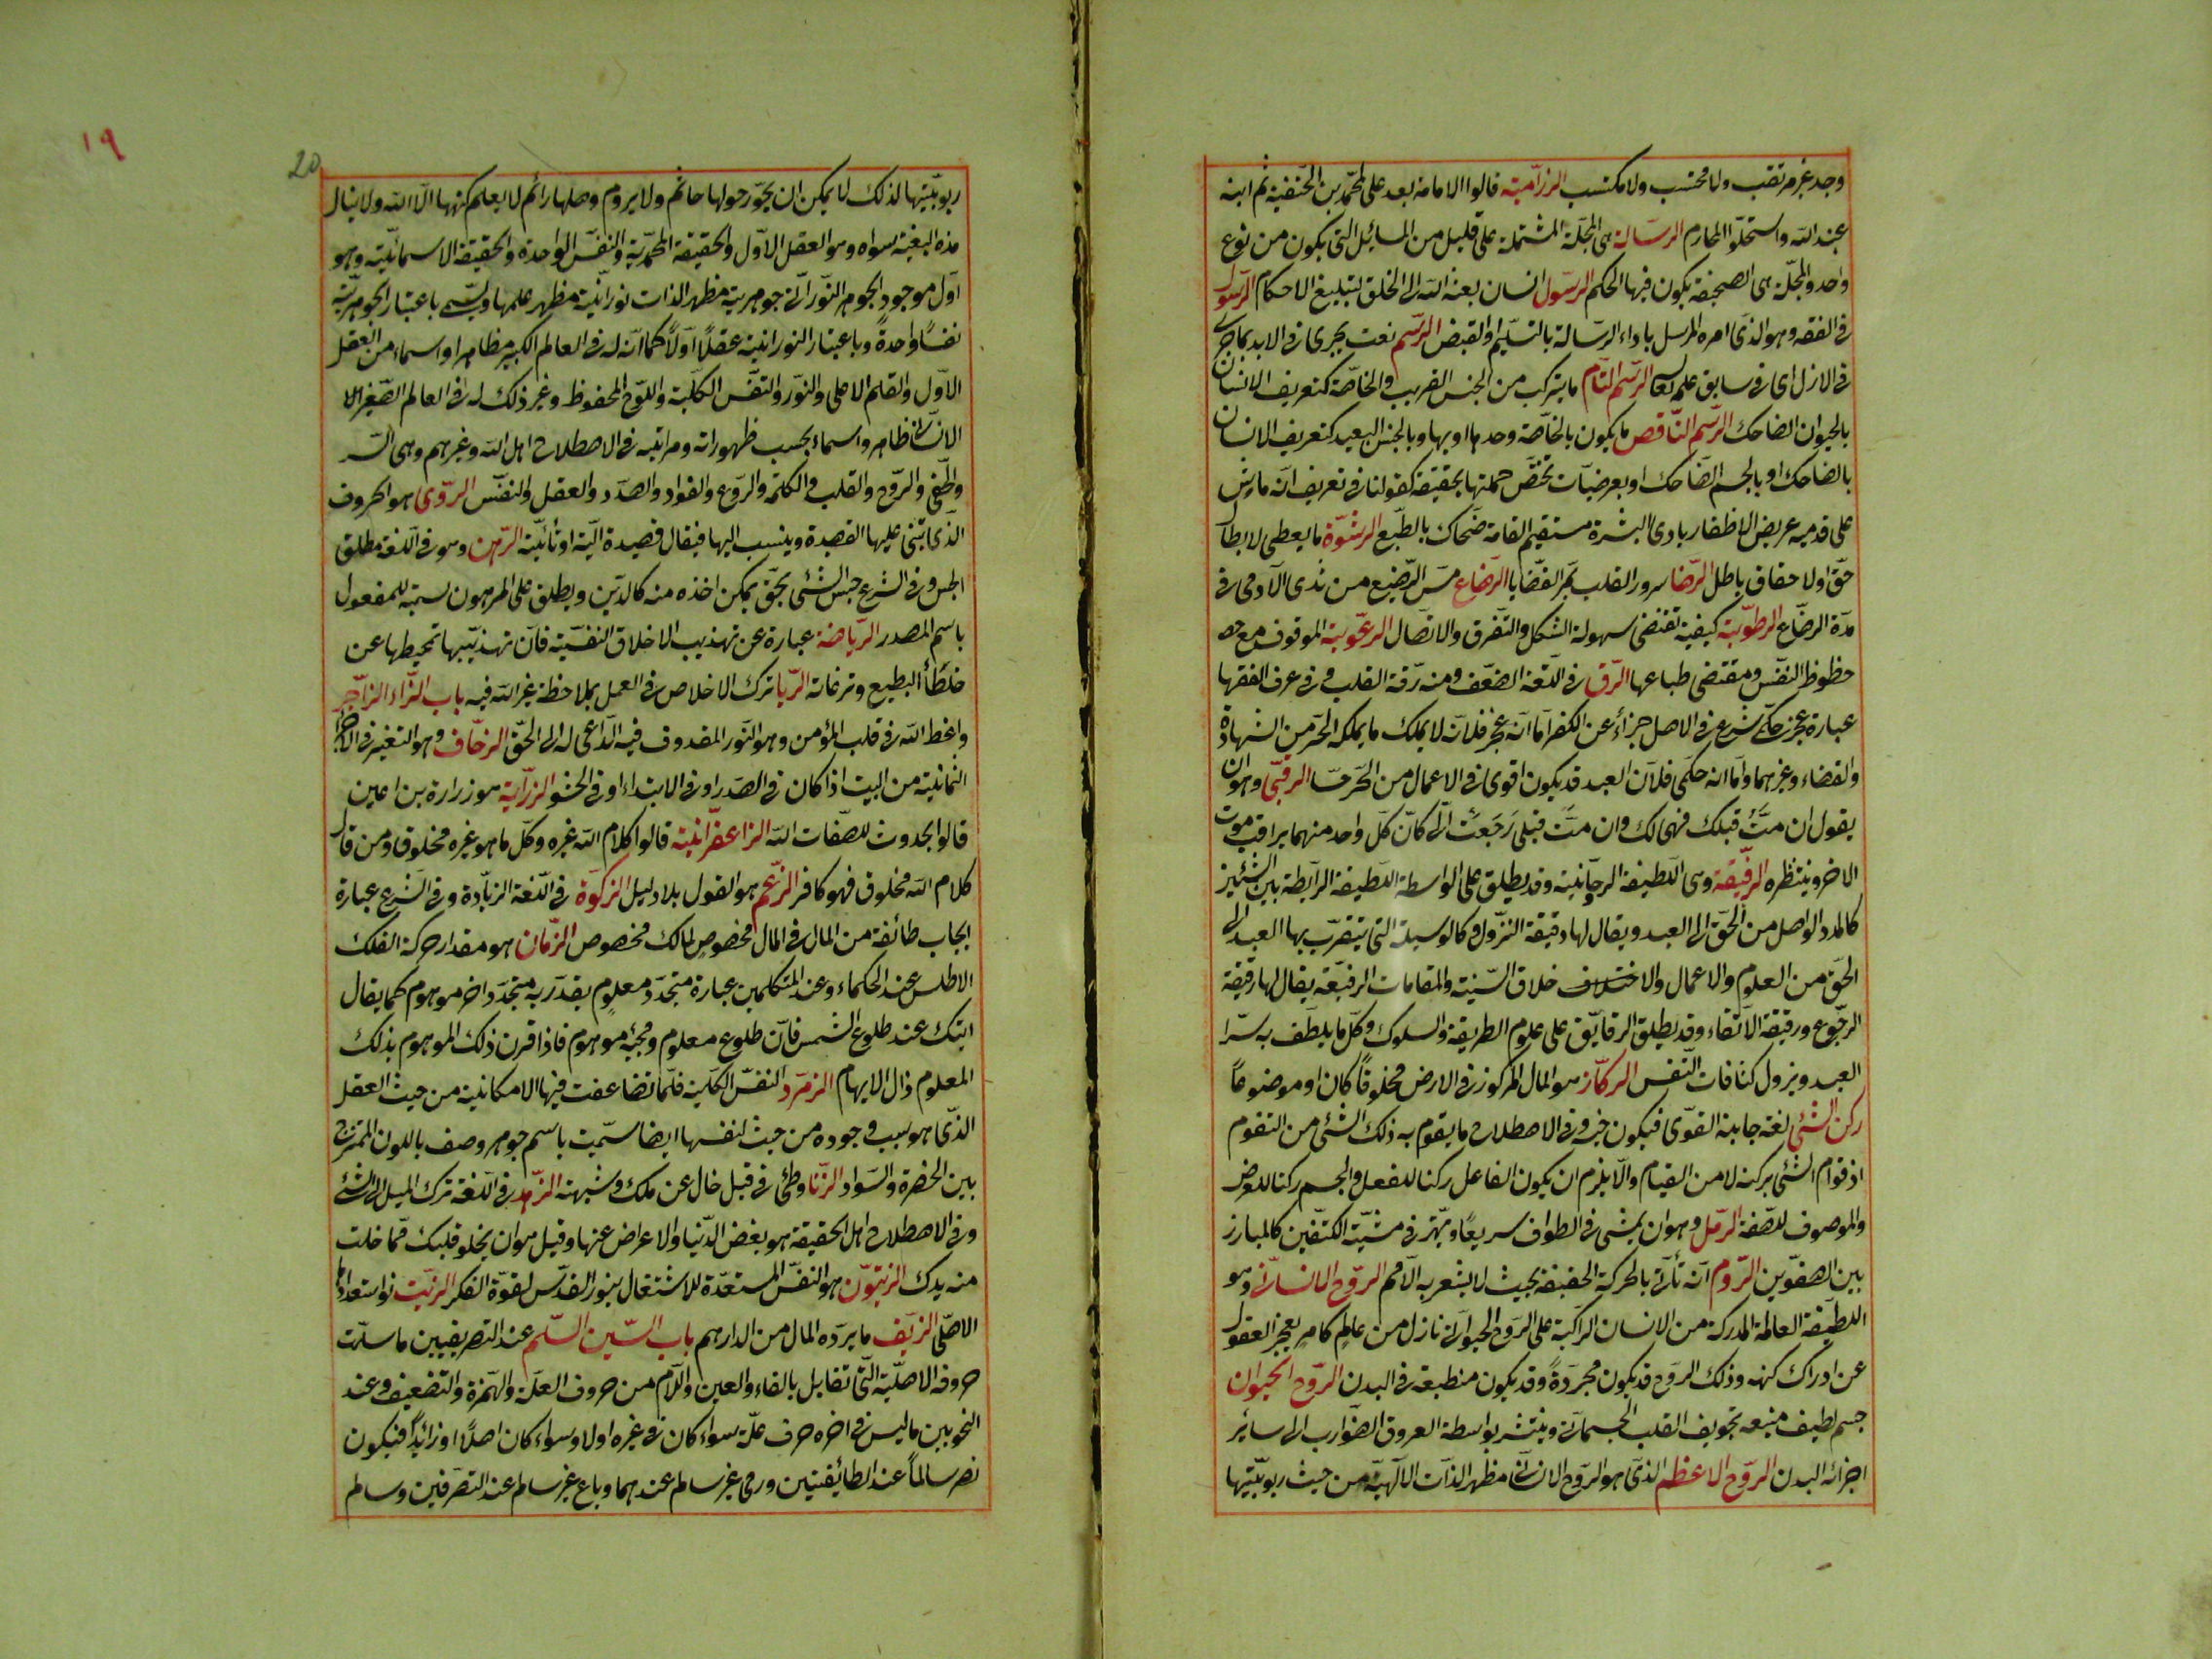 وجد غير مرتقب ولا محتسب ولا مكتسب الرزامية قالوا الامامة بعد على لمحمد بن الحنفية ثم ابنه
عبد الله واستحلوا المحارم الرسالة هى المجلة المشتملة على قليل من المسائل التى يكون من نوع
واحد والمجلة هى الصحيفة يكون فيها الحكم الرسول انسان بعثه الله الى الخلق لتبليغ الاحكام الرسول
فى الفقه وهو الذى امره المرسل باداء الرسالة بالتسليم او القبض الرسم نعت يجرى فى الابد بما جرى
فى الازل اى فى سابق علمه تعالى الرسم التام ما يتركب من الجنس القريب والخاصة كتعريف الانسان
بالحيوان الضاحك الرسم الناقص ما يكون بالخاصة وحدها او بها وبالجنس البعيد كتعريف الانسان
بالضاحك او بالجسم الضاحك او بعرضيات تختص جملتها بحقيقة كقولنا فى تعريف انه ماش
على قدميه عريض الاظفار بادى البشرة مستقيم القامة ضحاك بالطبع الرشوة ما يعطى لابطال
حق او لاحقاق باطل الرضا سرور القلب بمر القضايا الرضاع مص الرضيع من ثدى الآدمى فى
مدة الرضاع الرطوبة كيفية تقتضى سهولة الشكل والتفرق والاتصال الرعونة الموقوف مع حص
حظوظ النفس ومقتضى طباعها الرق فى اللغة الضعف ومنه رقة القلب وفى عرف الفقها
عبارة عجز حكمى شرع فى الاصل جزاء عن الكفر اما انه عجز فلانه لا يملك ما يملكه الحر من الشهادة
والقضاء وغيرهما واما انه حكمى فلان العبد قد يكون اقوى فى الاعمال من الحر حسا الرقبى وهو ان
يقول ان مت قبلك فهى لك وان مت قبلى رجعت الى كان كل واحد منهما يراقب موت
الاخر وينتظره الرقيقة وهى اللطيفة الروحانية وقد يطلق على الواسطة اللطيفة الرابطة بين الشيئين
كالمدد الواصل من الحق الى العبد ويقال لها دقيقة النزول وكالوسيلة التى يتقرب بها العبد الى
الحق من العلوم والاعمال والاختلاف خلاق السنية والمقامات الرفيعة يقال لها رقيقة
الرجوع ورقيقة الاتقاء وقد يطلق الرقايق على علوم الطريقة والسلوك وكل ما يلطف به سر ا
العبد ويزول كثافات النفس الركاز هو المال المركوز فى الارض مخلوقا كان او موضوعا
ركن الشئ لغة جانبه القوى فيكون عينه وفى الاصطلاح ما يقوم به ذلك الشئ من التقوم
اذ قوام الشئ بركنه لا من القيام والا يلزم ان يكون الفاعل ركنا للفعل والجسم ركنا للعرض
والموصوف للصفة الرمل وهو ان يمشى فى الطواف سريعا ويهتز فى مشيته الكتفين كالمبارز
بين الصفوين الروم ان تأتى بالحركة الخفيفة بحيث لا يشعر به الاصم الروح الانسانى وهو
اللطيفة العالمة المدركة من الانسان الراكبة على الروح الحيوانى نازل من عالم كامر يعجز العقول
عن ادراك كنهه وذلك الروح قد يكون مجردة وقد يكون منطبقة فى البدن الروح الحيوان
جسم لطيف منبعه تجويف القلب الجسمانى وينتشر بواسطة العروق الضوارب الى سائر
اجزائه البدن الروح الاعظم الذى هو الروح الانسانى مظهر الذات الالهية من حيث ربوبيتها
١٩
20
ربوبيتها لذلك لا يمكن ان يحوز حولها حائم ولا يروم وصلها رائم لا يعلم كنهها الا الله ولا ينال
هذه البغية سواه وهو العقل الاول والحقيقة المحمدية والنفس الواحدة والحقيقة الاسمائية وهو
اول موجود الجوهر النورانى جوهريته مظهر الذات نورانيته مظهر علمها ويسمى باعتبار الجوهرية
نفسا واحدة وباعتبار النورانية عقلا اولا كما انه له فى العالم الكبير مظاهر او اسماء من العقل
الاول والقلم الاعلى والنور والنفس الكلية واللوح المحفوظ وغير ذلك له فى العالم الصغير الا
الانسانى ظاهر واسماء بحسب ظهوراته ومراتبه فى الاصطلاح اهل الله وغيرهم وهى السر
والخفى والروح والقلب والكلمة والروع والفواد والصدر والعقل والنفس الروى هو الحروف
الذى يبنى عليها القصيدة وينسب اليها فيقال قصيدة الية او تائية الرهن وهو فى اللغة مطلق
الحبس وفى الشرع حبس الشئ بحق يمكن اخذه منه كالدين ويطلق على المرهون تسمية للمفعول
باسم المصدر الرياضة عبارة عن تهذيب الاخلاق النفسية فان تهذيبها تمحيطها عن
خلطأ البطيع ونزغاته الريا ترك الاخلاص فى العمل بملاحظة غير الله فيه باب الزاء الزاجر
واعظ الله فى قلب المؤمن وهو النور المقذوف فيه الداعى له الى الحق الزحاف وهو التغير فى الاجزا
الثمانية من البيت اذا كان فى الصدر او فى الابتداء او فى الحشو الزرارية هو زرارة بن اعين
قالوا بحدوث للصفات الله الزاعفرانية قالوا كلام الله غيره وكل ما هو غيره مخلوق ومن قال
كلام الله مخلوق فهو كافر الزعم هو القول بلا دليل الزكوة فى اللغة الزيادة وفى الشرع عبارة
ايجاب طائفة من المال فى المال مخصوص لمالك مخصوص الزمان هو مقدار حركة الفلك
الاطلس عند الحكماء وعند المتكلمين عبارة متجدد معلوم يقدر به متجدد اخر موهوم كما يقال
اتيك عند طلوع الشمس فان طلوع معلوم ومجيئه موهوم فاذا قرن ذلك الموهوم بذلك
المعلوم ذال الايهام الزمرد النفس الكلية فلما تضاعفت فيها الامكانية من حيث العقل
الذى هو سبب وجوده من حيث نفسها ايضا سميت باسم جوهر وصف باللون الممتزج
بين الخضرة والسواد الزنا وطئ فى قبل خال عن ملك وشبهته الزهد فى اللغة ترك الميل الى الشئ
وفى الاصطلاح اهل الحقيقة هو بغض الدنيا والاعراض عنها وقيل هو ان يخلو قلبك مما خلت
منه يدك الزيتون هو النفس المستعدة للاشتغال بنور القدس لقوة الفكر الزيت نواستعدادها
الاصلى الزيف ما يرده المال من الدارهم باب السين السلم عند التصريفيين ما سلمت
حروفه الاصلية التى تقابل بالفاء والعين واللام من حروف العلة والهمزة والتضعيف وعند
النحويين ما ليس فى اخره حرف علة سواء كان فى غيره اولا وسواء كان اصلا او زائدا فيكون
نصر سالما عند الطائفتين ورمى غير سالم عندهما وباع غير سالم عند التصرفين وسالم